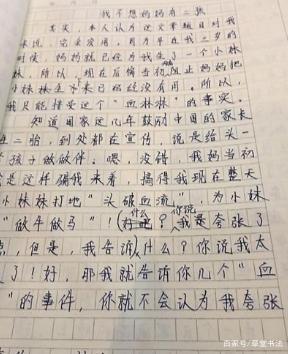 我不想妈妈有二胎
其实，本人认为这文章题目对我
来说，完全没用。因为早在我二岁的
时候，妈妈就已经为我生了一个小妹
妹，所以，现在后悔当初阻止妈妈把
小妹妹生下来已经没有用。所以，
我只能接受这个"血淋淋"的事实。
知道国家这几年鼓励中国的家长
生二胎，到处都在宣传，说是给头一
个孩子做做伴。嗯，没错，我妈当初
就是这样骗我来着，搞得我现在整天
小妹妹打地"头破血流"，为小妹
"做牛做马"！什么？你说我是夸张了
点，但是，我告诉什么？你说我太
了！好，那我就告诉你几个"血
"的事件，你就不会认为我夸张
百家号/草堂书法